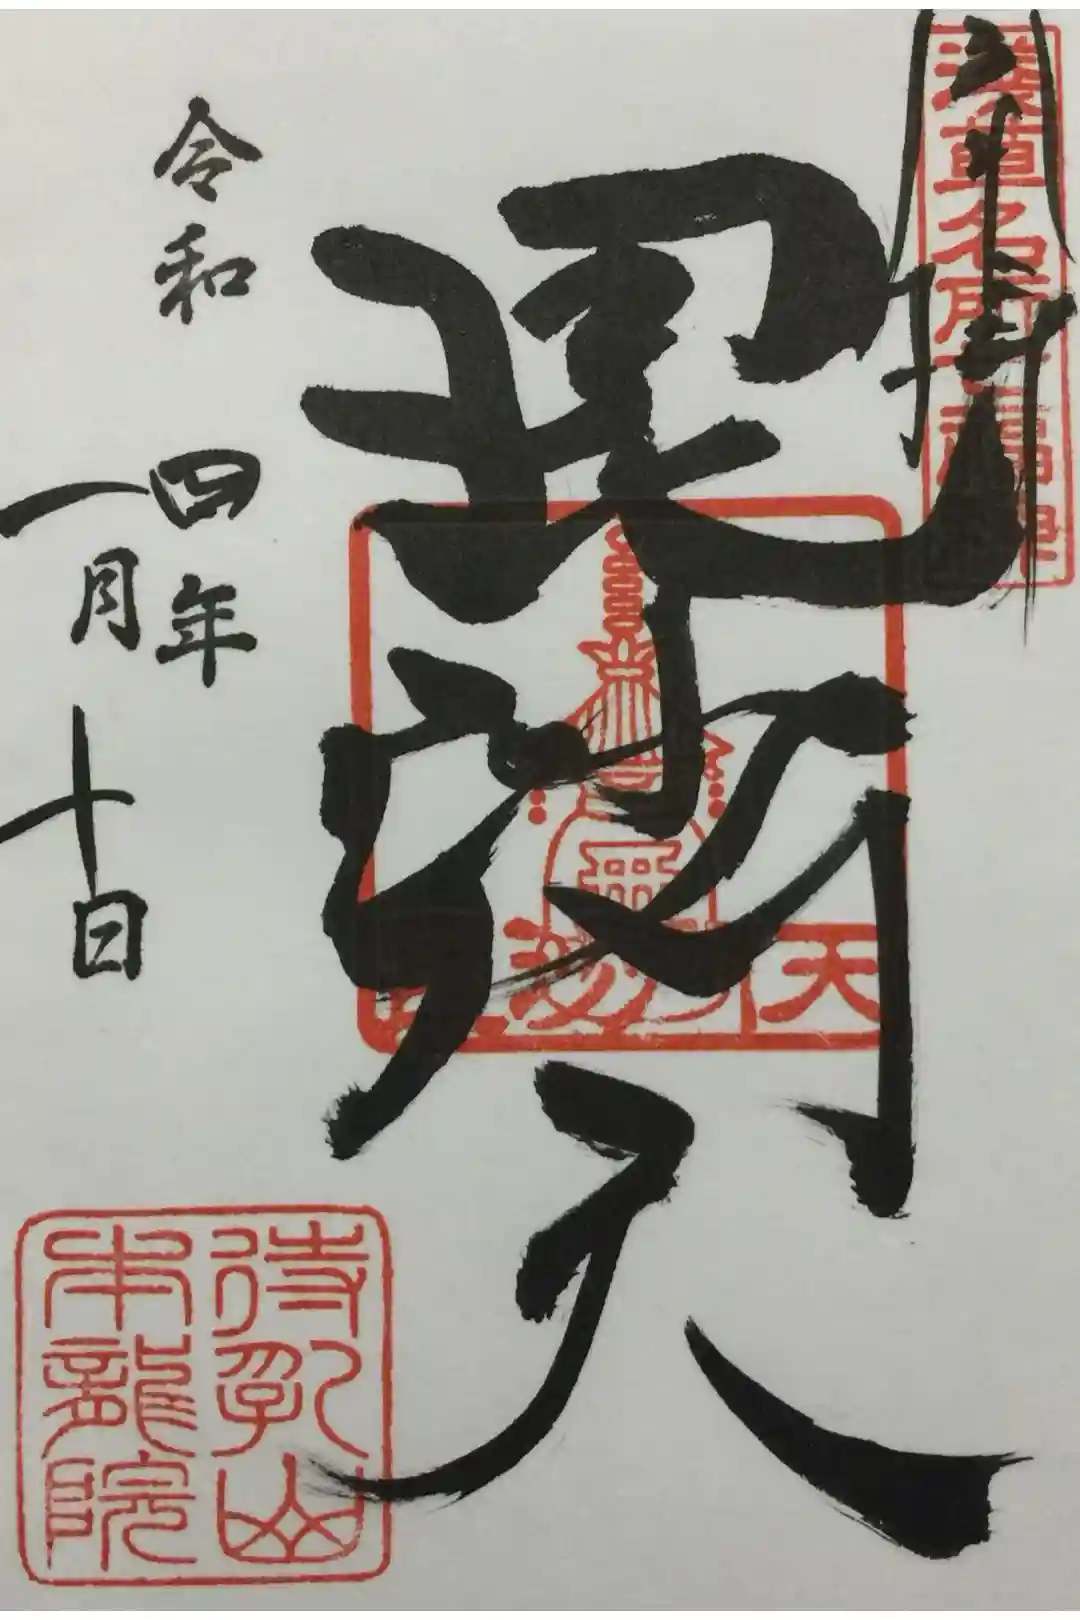 奉拝
浅草名所七福神
毘沙門天
毘沙門天
令和四年
一月十日
待乳山
本龍院